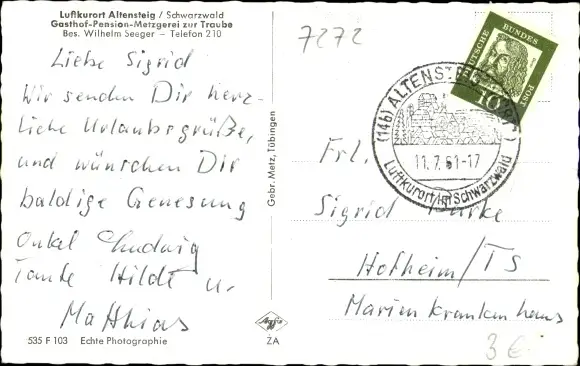 Luftkurort Altensteig / Schwarzwald
Gasthof-Pension-Metzgerei zur Traube
Bes. Wilhelm Seeger – Telefon 210
7272
Liebe Sigrid
Wir senden Dir herz-
liche Urlaubsgrüße,
und wünschen Dir
baldige Genesung
Onkel Ludwig
Tante Hilde u.
Matthias
535 F 103 Echte Photographie
Gebr. Metz, Tübingen
Agfa
ZA
DEUTSCHE BUNDESPOST
10
(14b) ALTENSTEIG
11.7.61-17
Luftkurort im Schwarzwald
Frl.
Sigrid
Hofheim/TS
Marienkrankenhaus
3€